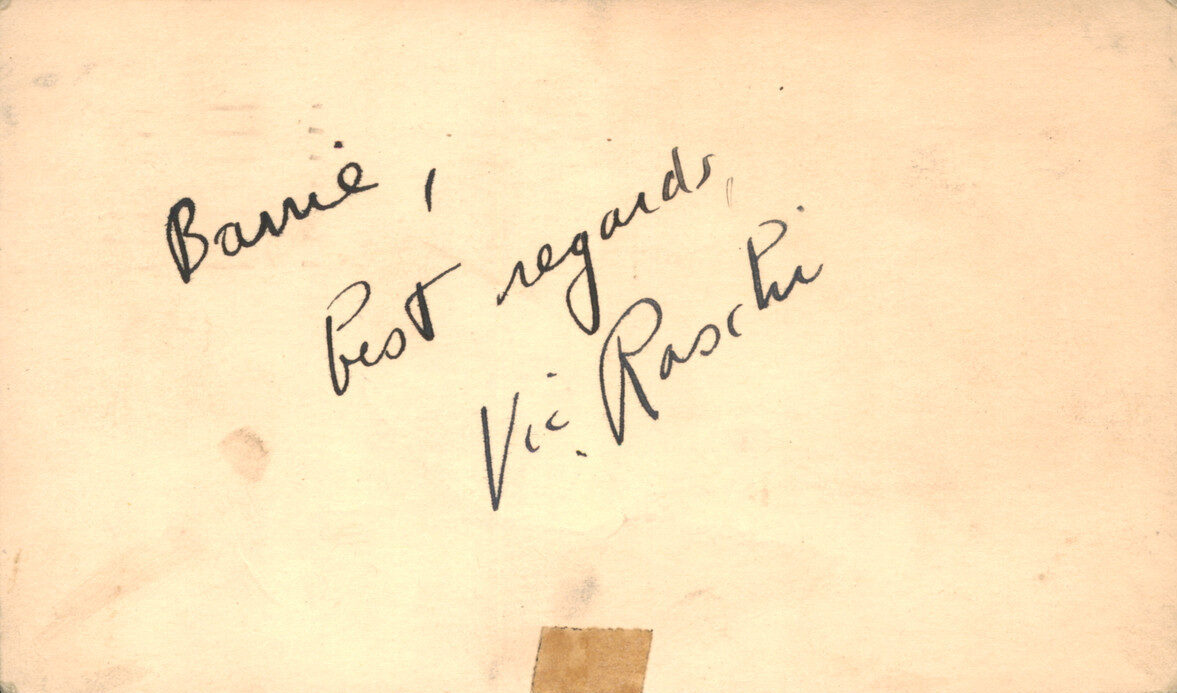 Barrie,
Best regards,
Vic. Raschi